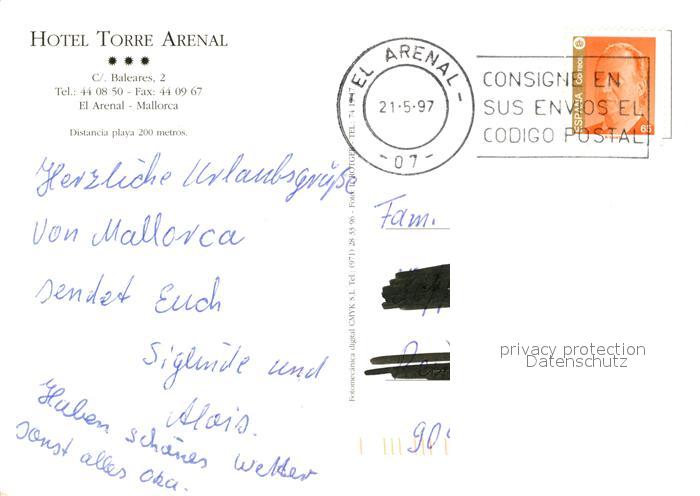 HOTEL TORRE ARENAL
C/. Baleares, 2
Tel.: 44 08 50 - Fax: 44 09 67
El Arenal - Mallorca
Distancia playa 200 metros.
Herzliche Urlaubsgrüße
von Mallorca
sendet Euch
Siglinde und
Alois.
Haben schönes Wetter
sonst alles oka.
Fotomecánica digital CMYK S.L. Tel.: (971) 28 33 96 - Foto:
EL ARENAL
21-5-97
-07-
CONSIGNE EN
SUS ENVIOS EL
CODIGO POSTAL
ESPAÑA Correos
65
Fam.
privacy protection
Datenschutz
90